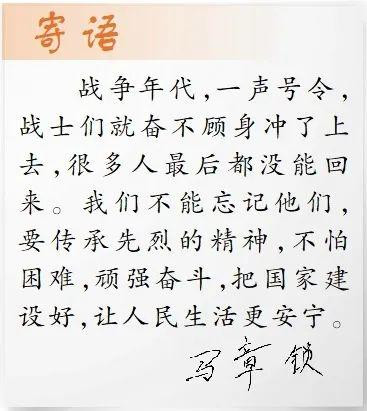 寄语
战争年代,一声号令,
战士们就奋不顾身冲了上
去,很多人最后都没能回
来。我们不能忘记他们,
要传承先烈的精神,不怕
困难,顽强奋斗,把国家建
设好,让人民生活更安宁。
马章锁